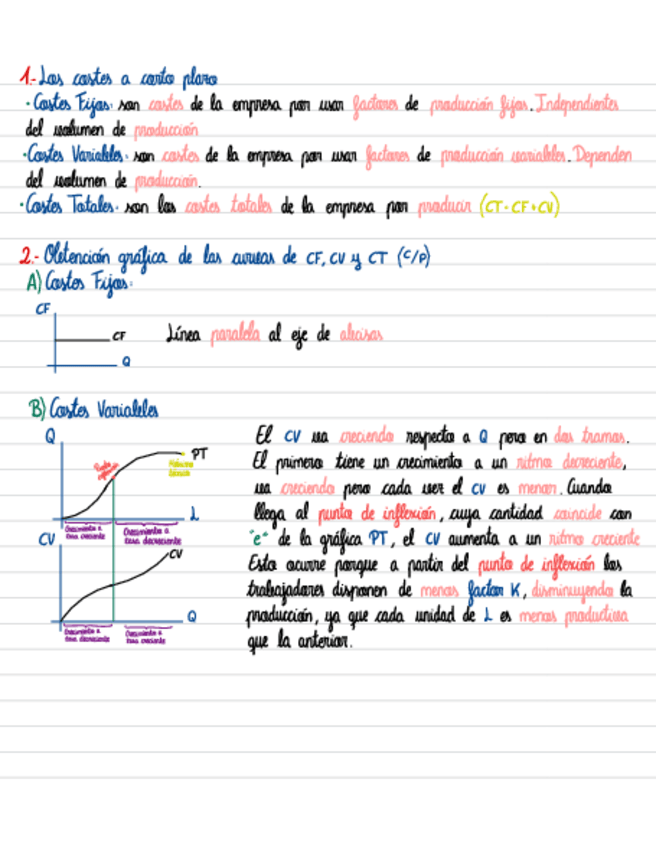 1.- Los costes a corto plazo
· Costes Fijos: son costes de la empresa por usar factores de producción fijos. Independientes
del volumen de producción
· Costes Variables: son costes de la empresa por usar factores de producción variables. Dependen
del volumen de producción.
· Costes Totales: son los costes totales de la empresa por producir (CT=CF+CV)
2.- Obtención gráfica de las curvas de CF, CV y CT (C/P)
A) Costes Fijos:
CF
CF
Q
Línea paralela al eje de abcisas
B) Costes Variables
Q
PT
Punto inflexión
Máximo técnico
L
Crecimiento a
tasa creciente
Crecimiento a
tasa decreciente
CV
CV
Q
Crecimiento a
tasa decreciente
Crecimiento a
tasa creciente
El CV va creciendo respecto a Q pero en dos tramos.
El primero tiene un crecimiento a un ritmo decreciente,
va creciendo pero cada vez el CV es menor. Cuando
llega al punto de inflexión, cuya cantidad coincide con
"e" de la gráfica PT, el CV aumenta a un ritmo creciente
Esto ocurre porque a partir del punto de inflexión los
trabajadores disponen de menos factor K, disminuyendo la
producción, ya que cada unidad de L es menos productiva
que la anterior.